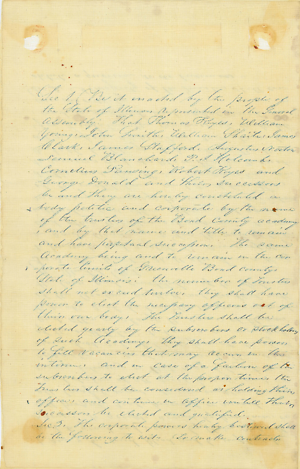 Sec 1. Be it enacted by the people of
the State of Illinois represented in the General
Assembly. That Thomas Keyes William
Young John Smith William
Clark James Stafford Augustus
Samuel Blanchard R. F. Holcombe
Cornelius Robert Keyes and
George Donald and their successors
be and they are hereby constituted a
body politic and corporate by the name
of the trustees of the Bond County academy
and by that name and title to remain
and have perpetual succession. The same
Academy being and to remain in the cor
porate limits of Greenville Bond county
State of Illinois. The number of trustees
shall not exceed twelve they shall have
power to elect the necessary officers out of
their own body. The Trustees shall be
elected yearly by the subscribers or stockholders
of such Academy they shall have power
to fill vacancies that may occur in the
interim. and in case of a failure of the
subscribers to elect at the proper times the
Trustees shall be considered as holding their
offices and continue in office until their
successors be elected and qualified.
Sec 2. The corporate powers hereby bestowed shall
be the following to wit. To make contracts